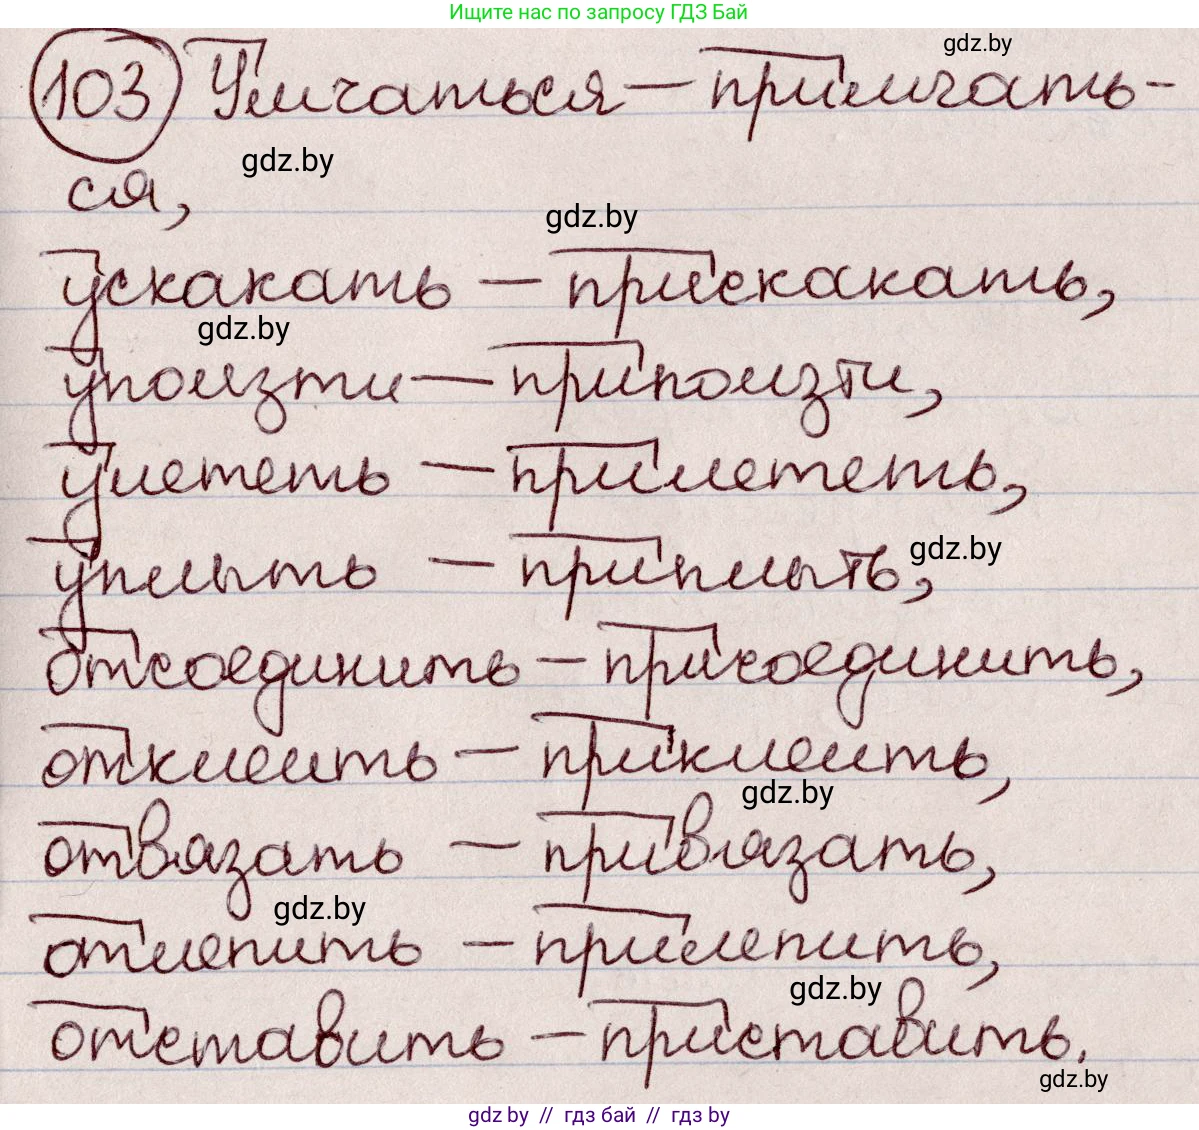 Ищите нас по запросу ГДЗ Бай
gdz.by
103 Умчаться — примчать-
gdz.by
ся,
gdz.by
ускакать — прискакать,
gdz.by
уползти — приползти,
улететь — прилететь,
уплыть — приплыть,
gdz.by
отсоединить — присоединить,
отклеить — приклеить,
gdz.by
отвязать — привязать,
gdz.by
отлепить — прилепить,
gdz.by
отставить — приставить.
gdz.by
gdz by // гдз бай // гдз by